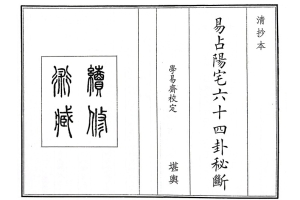 清抄本
易占陽宅六十四卦秘斷
學易齋校定
堪輿
續修
術藏